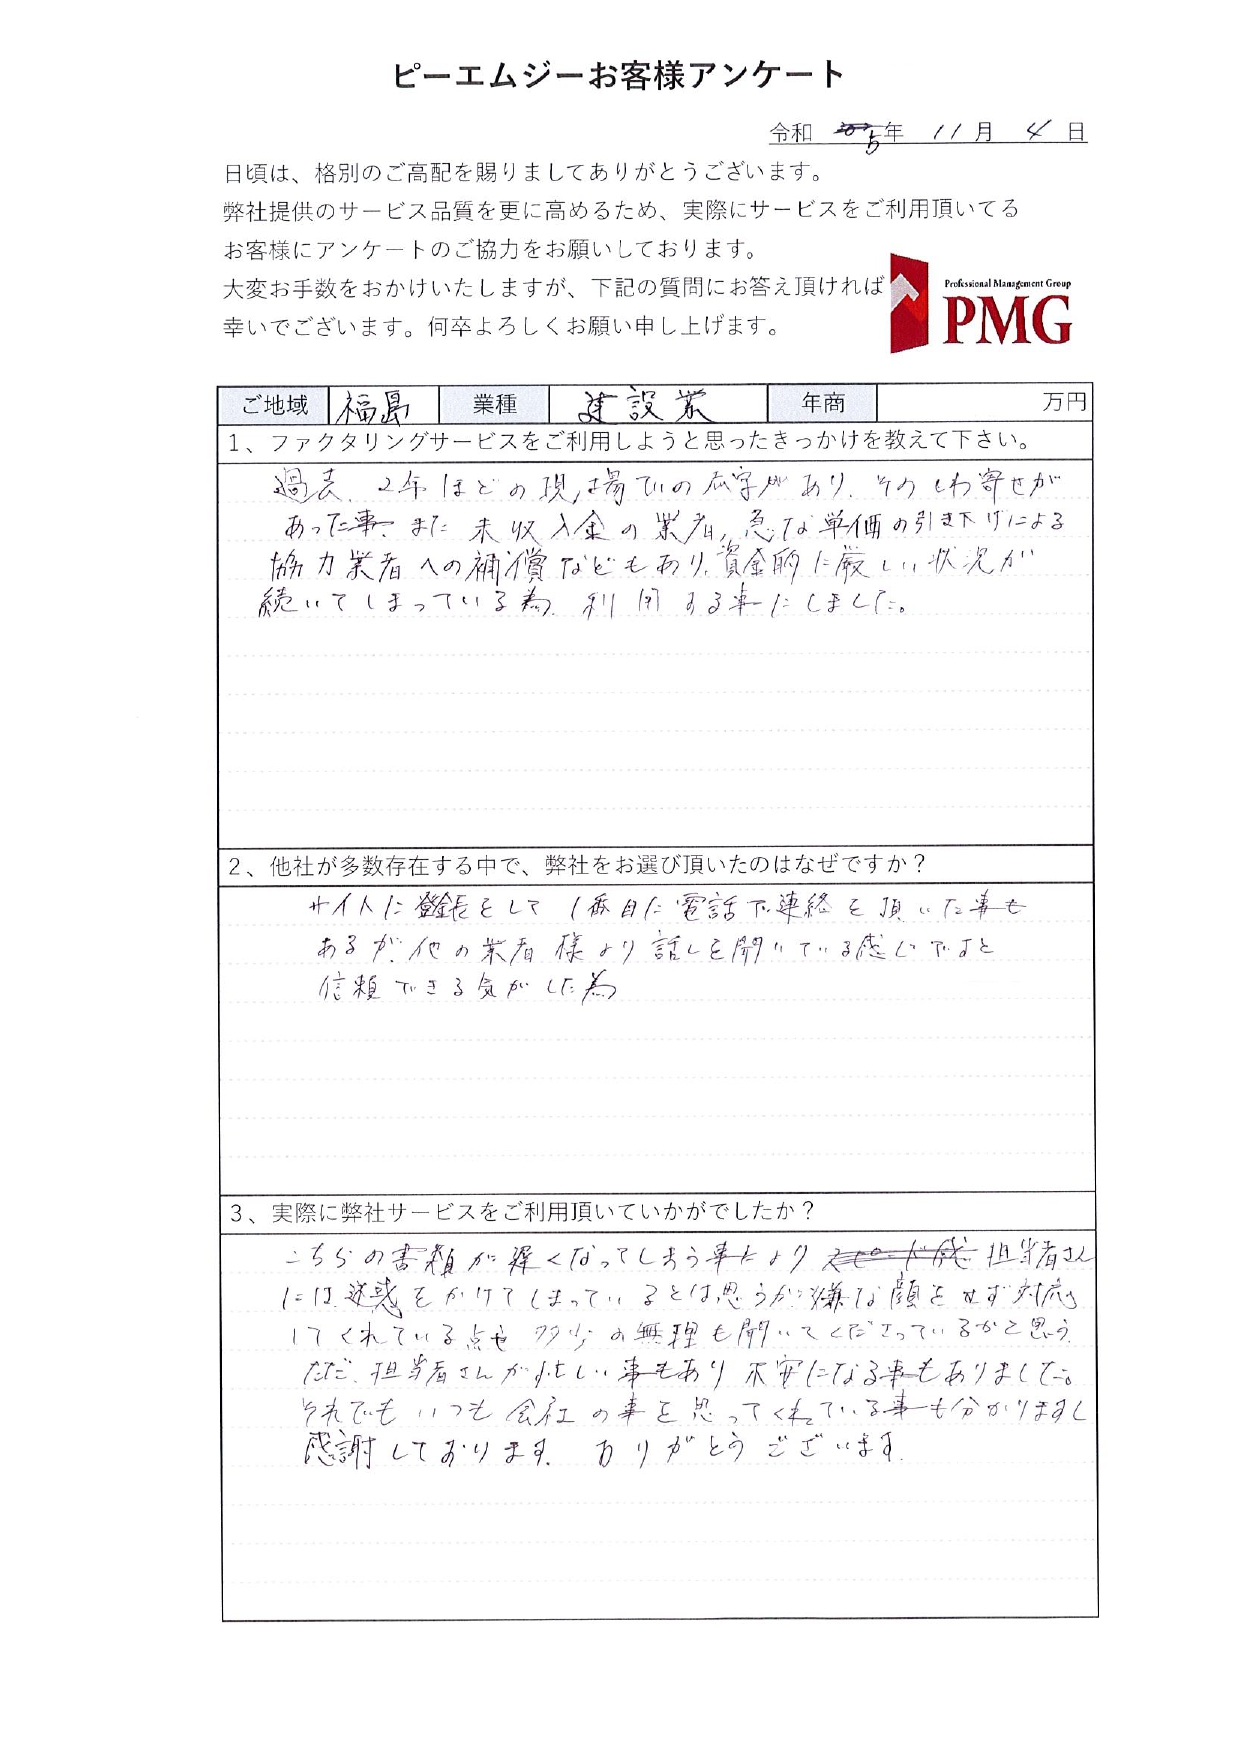 ピーエムジーお客様アンケート
令和 5年 11月 4日
日頃は、格別のご高配を賜りましてありがとうございます。
弊社提供のサービス品質を更に高めるため、実際にサービスをご利用頂いてる
お客様にアンケートのご協力をお願いしております。
大変お手数をおかけいたしますが、下記の質問にお答え頂ければ
幸いでございます。何卒よろしくお願い申し上げます。
Professional Management Group
PMG
ご地域 福島 業種 建設業 年商 万円
1、ファクタリングサービスをご利用しようと思ったきっかけを教えて下さい。
過去、2年ほどの現場での赤字があり、そのしわ寄せが
あった事、また未収入金の業者、急な単価の引き下げによる
協力業者への補償などもあり、資金的に厳しい状況が
続いてしまっている為、利用する事にしました。
2、他社が多数存在する中で、弊社をお選び頂いたのはなぜですか？
サイトに登録をして1番目に電話で連絡を頂いた事も
あるが、他の業者様より話しを聞いている感じで
信頼できる気がした為
3、実際に弊社サービスをご利用頂いていかがでしたか？
こちらの書類が遅くなってしまう事により 担当者さん
には迷惑をかけてしまっているとは思うが、嫌な顔をせず対応
してくれている点や多少の無理も聞いてくださっているかと思う。
ただ、担当者さんが忙しい事もあり不安になる事もありました。
それでもいつも会社の事を思ってくれている事も分かりますし
感謝しております。ありがとうございます。